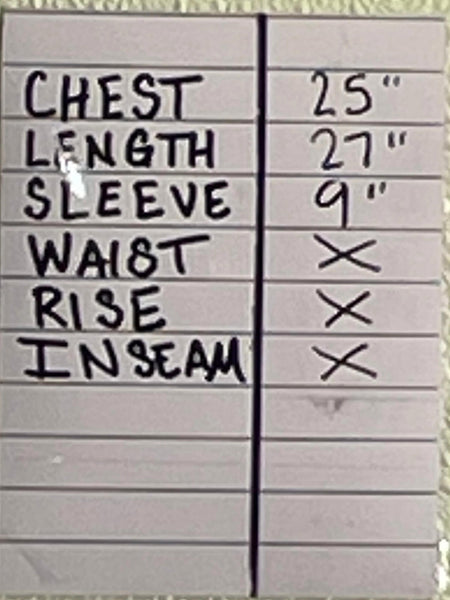 CHEST 25"
LENGTH 27"
SLEEVE 9"
WAIST X
RISE X
INSEAM X